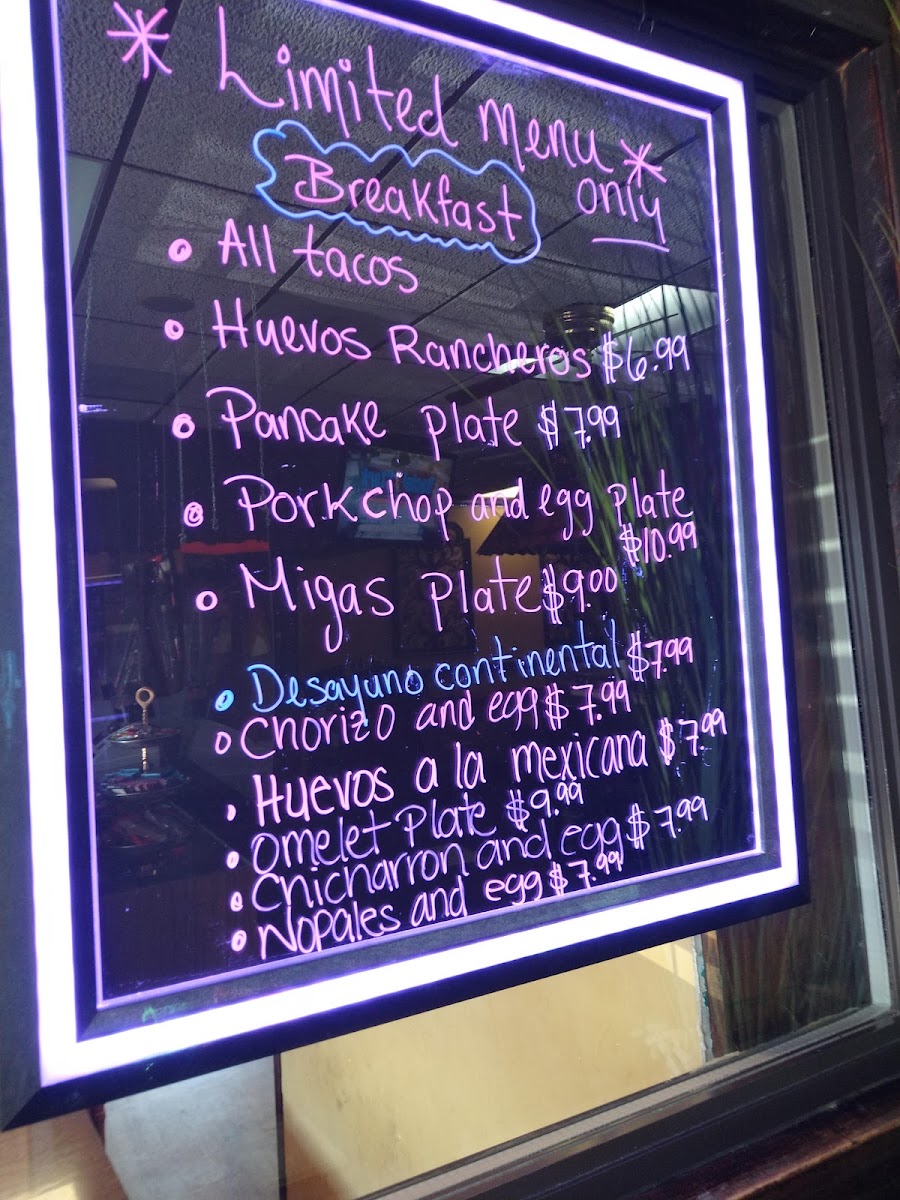 * Limited Menu *
Breakfast only
• All tacos
• Huevos Rancheros $6.99
• Pancake plate $7.99
• Porkchop and egg plate
$10.99
• Migas plate $9.00
• Desayuno continental $7.99
• Chorizo and egg $7.99
• Huevos a la mexicana $7.99
• Omelet Plate $9.99
• Chicharron and egg $7.99
• Nopales and egg $7.99